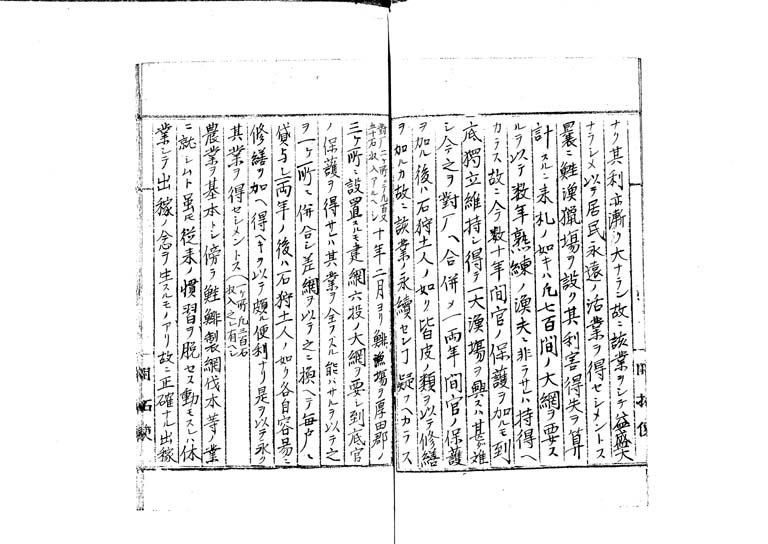 ナク其利亦漸ク大ナラン故ニ該業ヲシテ益盛大
ナラシメ以テ居民永遠ノ活業ヲ得セシメントス
曩ニ鮭漁猟場ヲ設ク其利害得失ヲ算
計スルニ来札ノ如キハ凡七百間ノ大網ヲ要ス
ルヲ以テ数年熟練ノ漁夫ニ非ラサレハ持得ヘ
カラス故ニ今数十年間官ノ保護ヲ加ルモ到
底獨立維持シ得ラ一大漁場ヲ興スハ甚タ難
シ今之ヲ對厂ヘ合併メ一両年間官ノ保護
ヲ加ル後ハ石狩土人ノ如ク皆皮ノ類ヲ以テ修繕
ヲ加ルカ故ニ該業ノ永續セン丁疑ヲヘカラス
對厂二ケ所ニテ九百又
五十石収入アルヘシ
十年二月ヨリ鯡漁場ヲ厚田郡ノ
三ケ所ニ設置スルモ建網六投ノ大網ヲ要シ到底官
ノ保護ヲ得サレハ其業ヲ全フスル能ハサルヲ以テ之
ヲ一ケ所ニ併合シ差網ヲ以テ之ニ換ヘテ毎戸ニ
貸与シ一両年ノ後ハ石狩土人ノ如ク各自容易ニ
修繕ヲ加ヘ得ヘキヲ以テ頗ル便利ナリ是ヲ以テ永ク
其業ヲ得セシメントス
(一ケ所凡三百石
収入之レ有ヘシ
農業ヲ基本トシ傍ラ鮭鯡製網伐木等ノ業
ニ就シムト虽モ従来ノ慣習ヲ脱セス動モスレハ休
業シテ出稼ノ念ヲ生スルモノアリ故ニ正確ナル出稼
開拓使